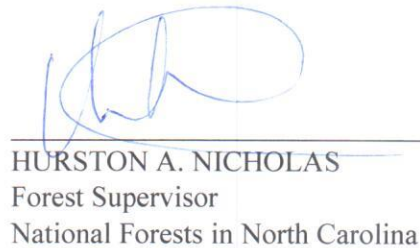 HURSTON A. NICHOLAS
Forest Supervisor
National Forests in North Carolina